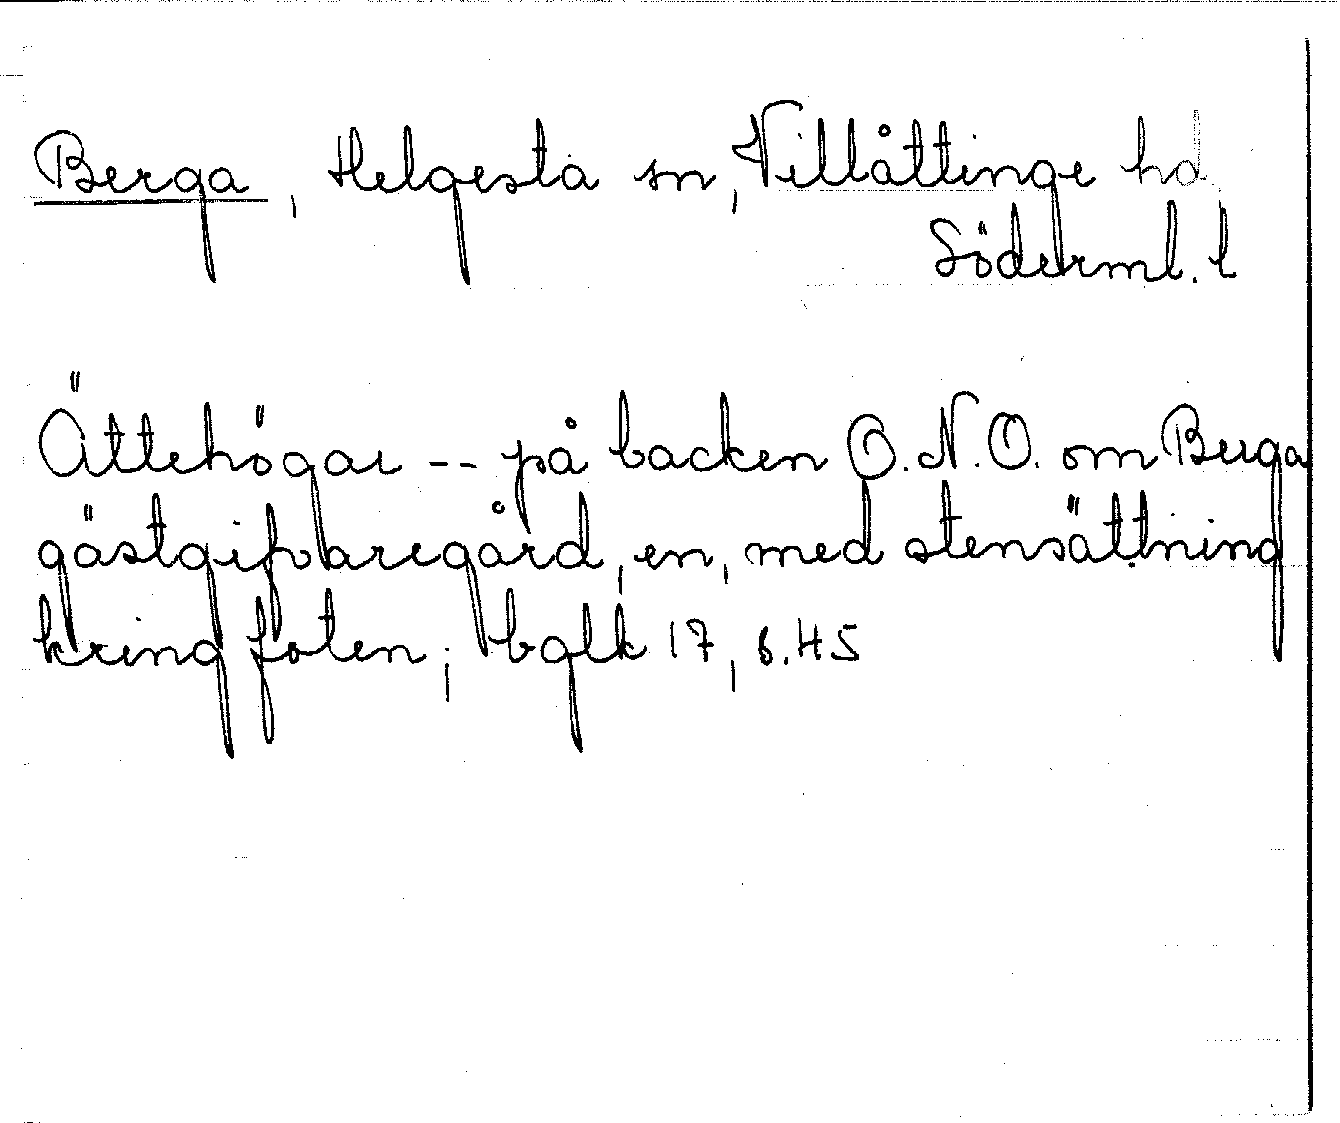 Berga, Helgesta sn, Villåttinge hd
Söderml. l
Ättehögar -- på backen O.N.O. om Berga
gästgifvaregård, en, med stensättning
kring foten; bglk 17, s.45